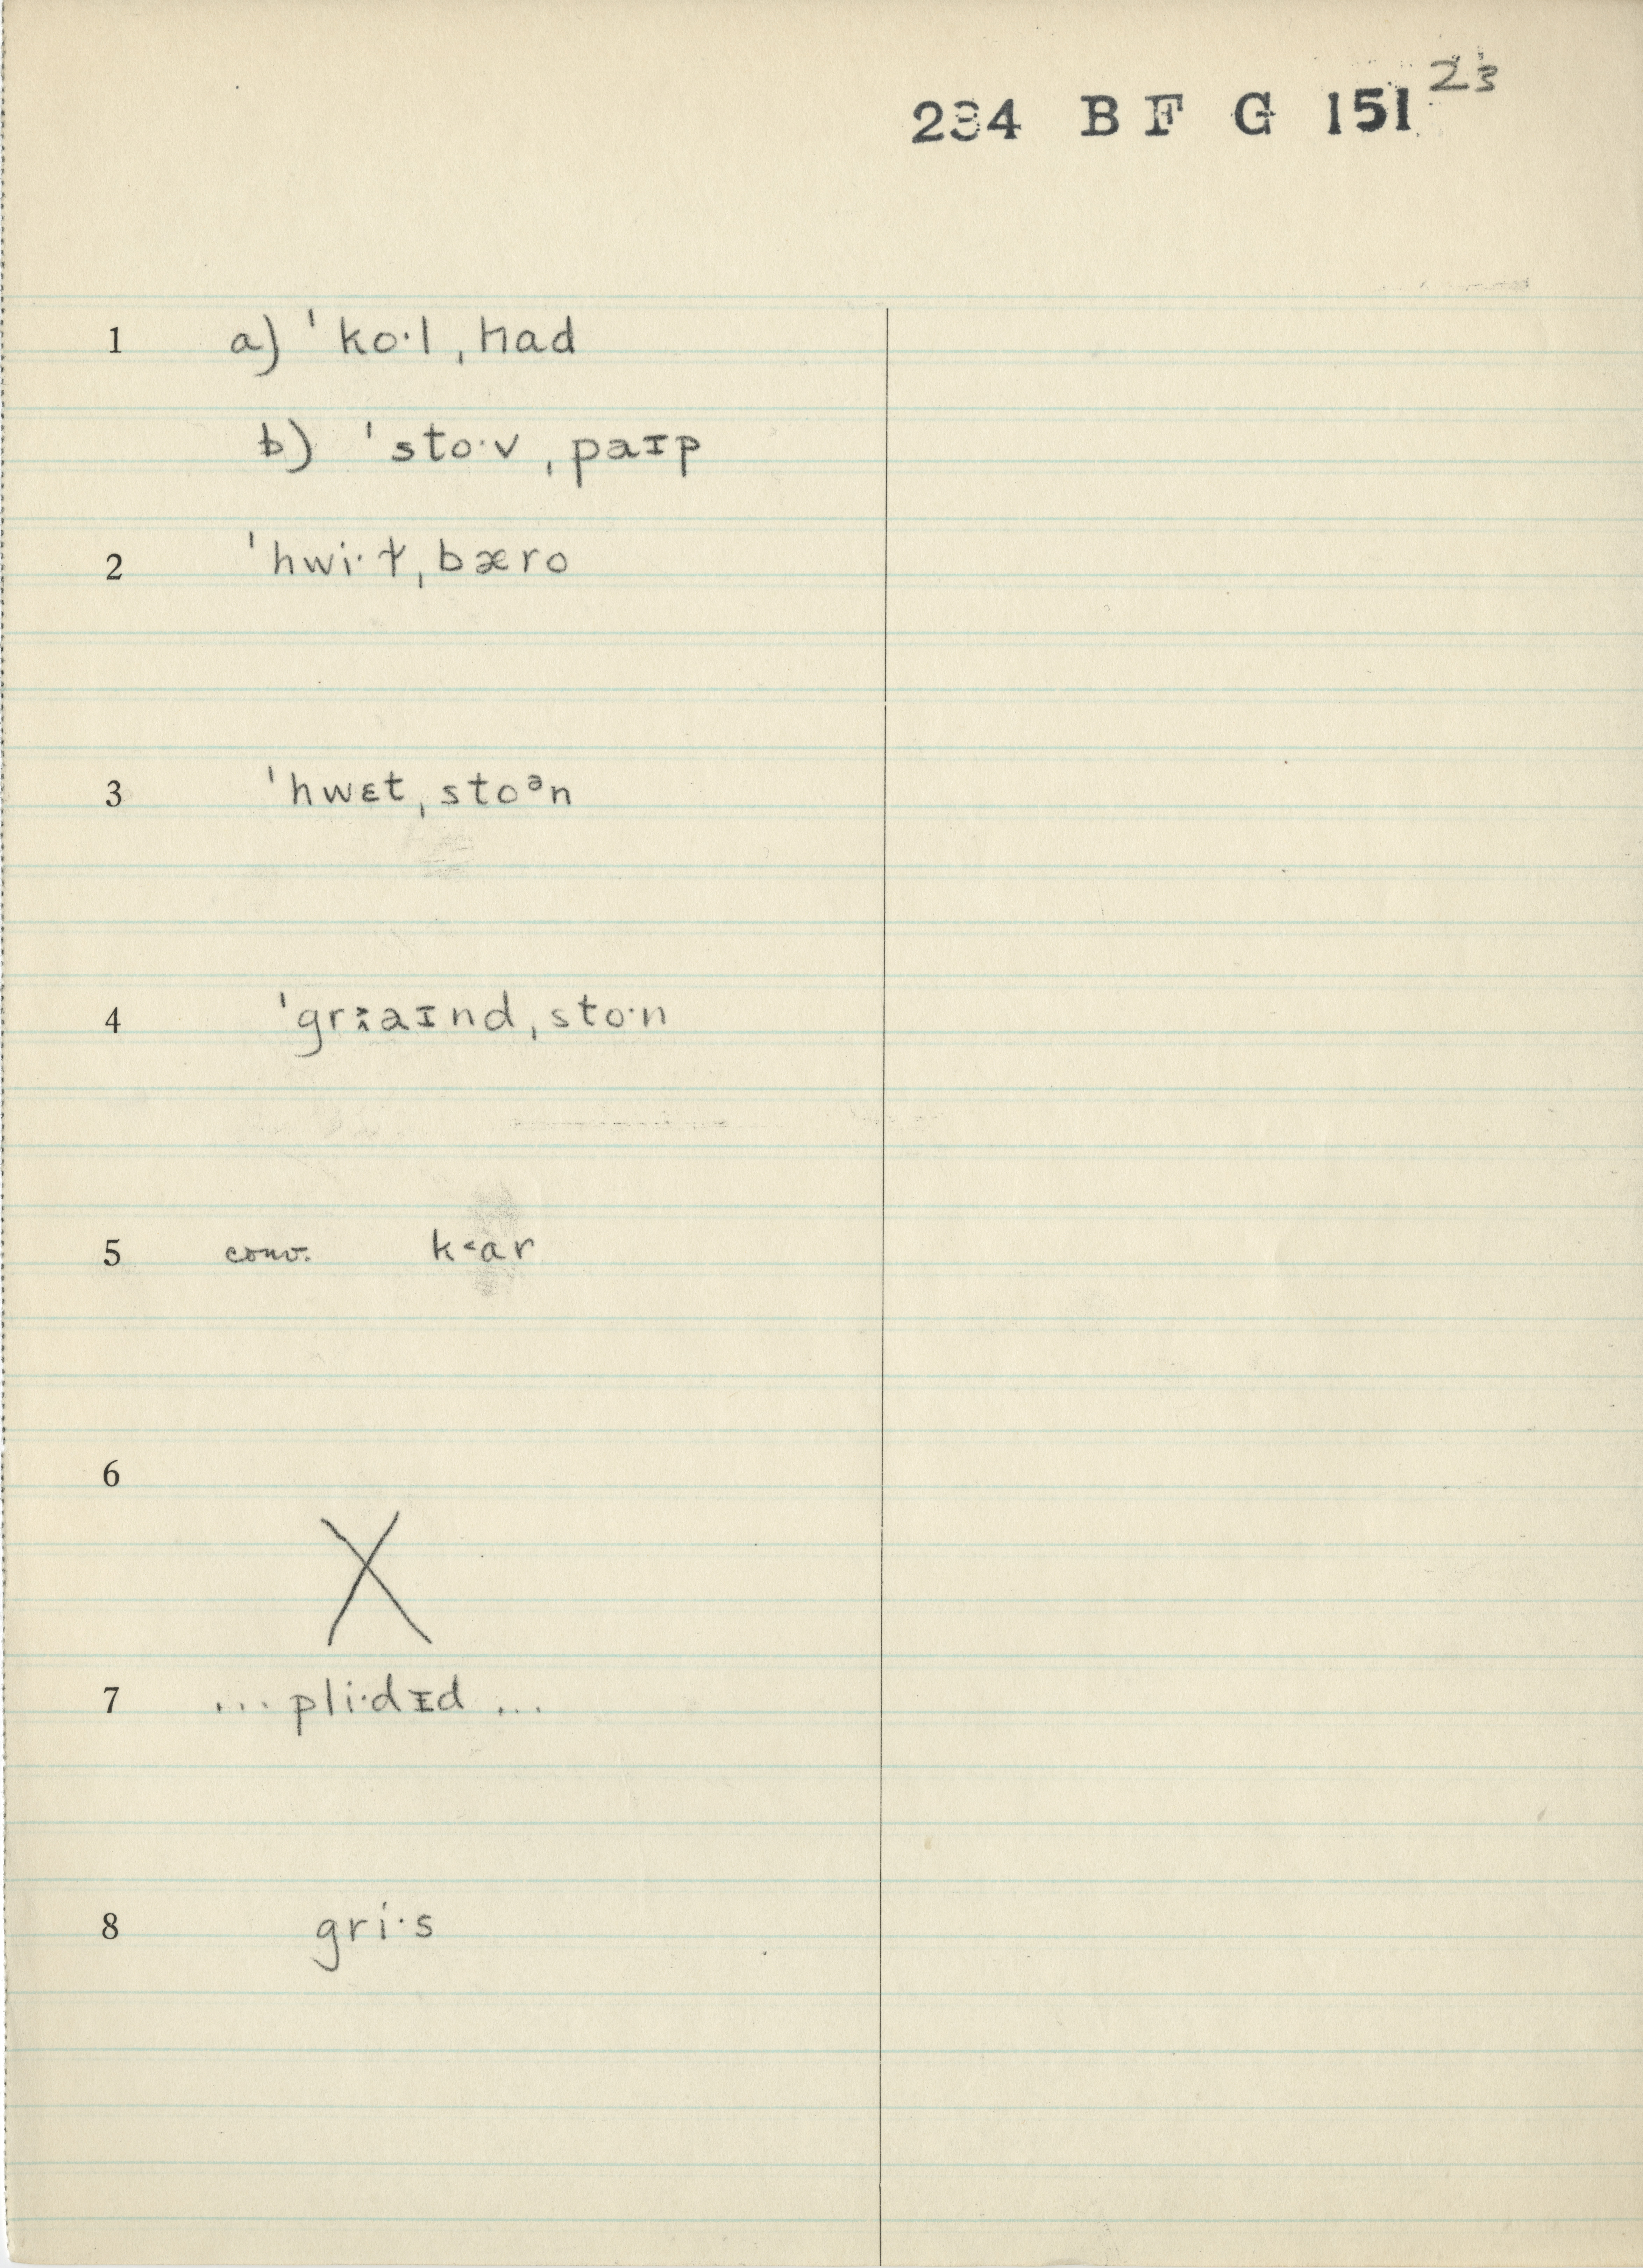 234 B F G 151 23
1 a) ˈko·l ˌhad
b) ˈsto·v ˌpaɪp
2 ˈhwi·ɫ ˌbæro
3 ˈhwɛt ˌstoᵊn
4 ˈgr aɪnd ˌsto·n
5 conv. k˂ar
6
X
7 ... pli·dɪd ...
8 gri·s